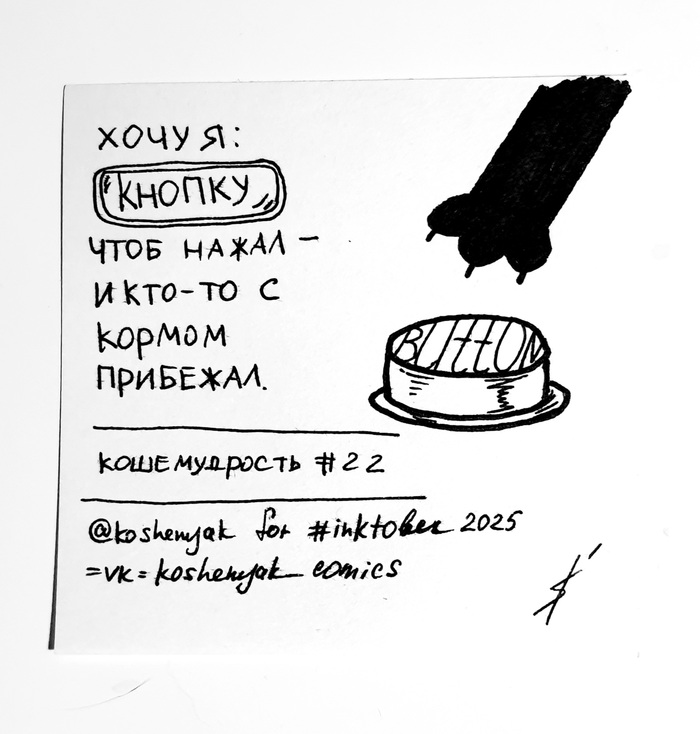 ХОЧУ Я:
КНОПКУ
ЧТОБ НАЖАЛ –
И КТО-ТО С
КОРМОМ
ПРИБЕЖАЛ.
BUTTON
КОШЕМУДРОСТЬ #22
@koshenyak for #inktober 2025
=vk= koshenyak_comics